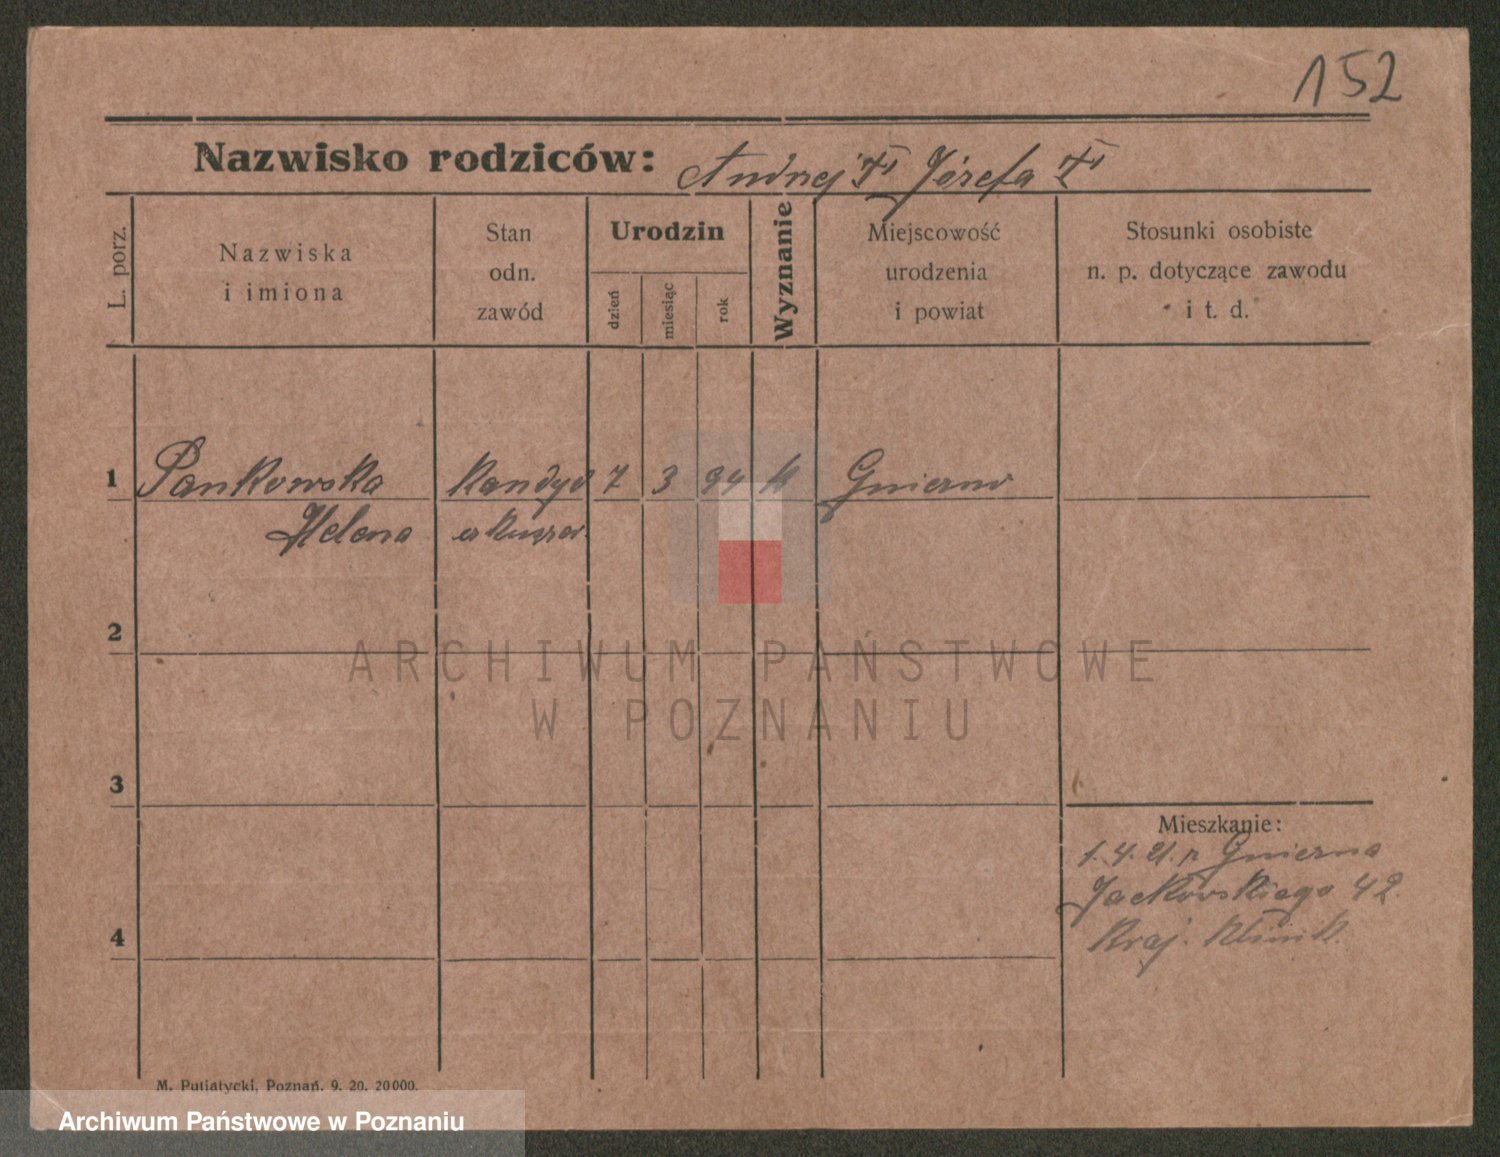 152
Nazwisko rodziców: Andrzej Józefa
L. porz.
Nazwiska
i imiona
Stan
odn.
zawód
Urodzin
dzień
miesiąc
rok
Wyznanie
Miejscowość
urodzenia
i powiat
Stosunki osobiste
n. p. dotyczące zawodu
i t. d.
1 Pankowska 7 3 94 k
Helena
2
ARCHIWUM PAŃSTWOWE
W POZNANIU
3
Mieszkanie:
1. 4. 21.
Jackowskiego 42
Kraj. Klinik.
4
M. Putiatycki, Poznań. 9. 20. 20000.
Archiwum Państwowe w Poznaniu